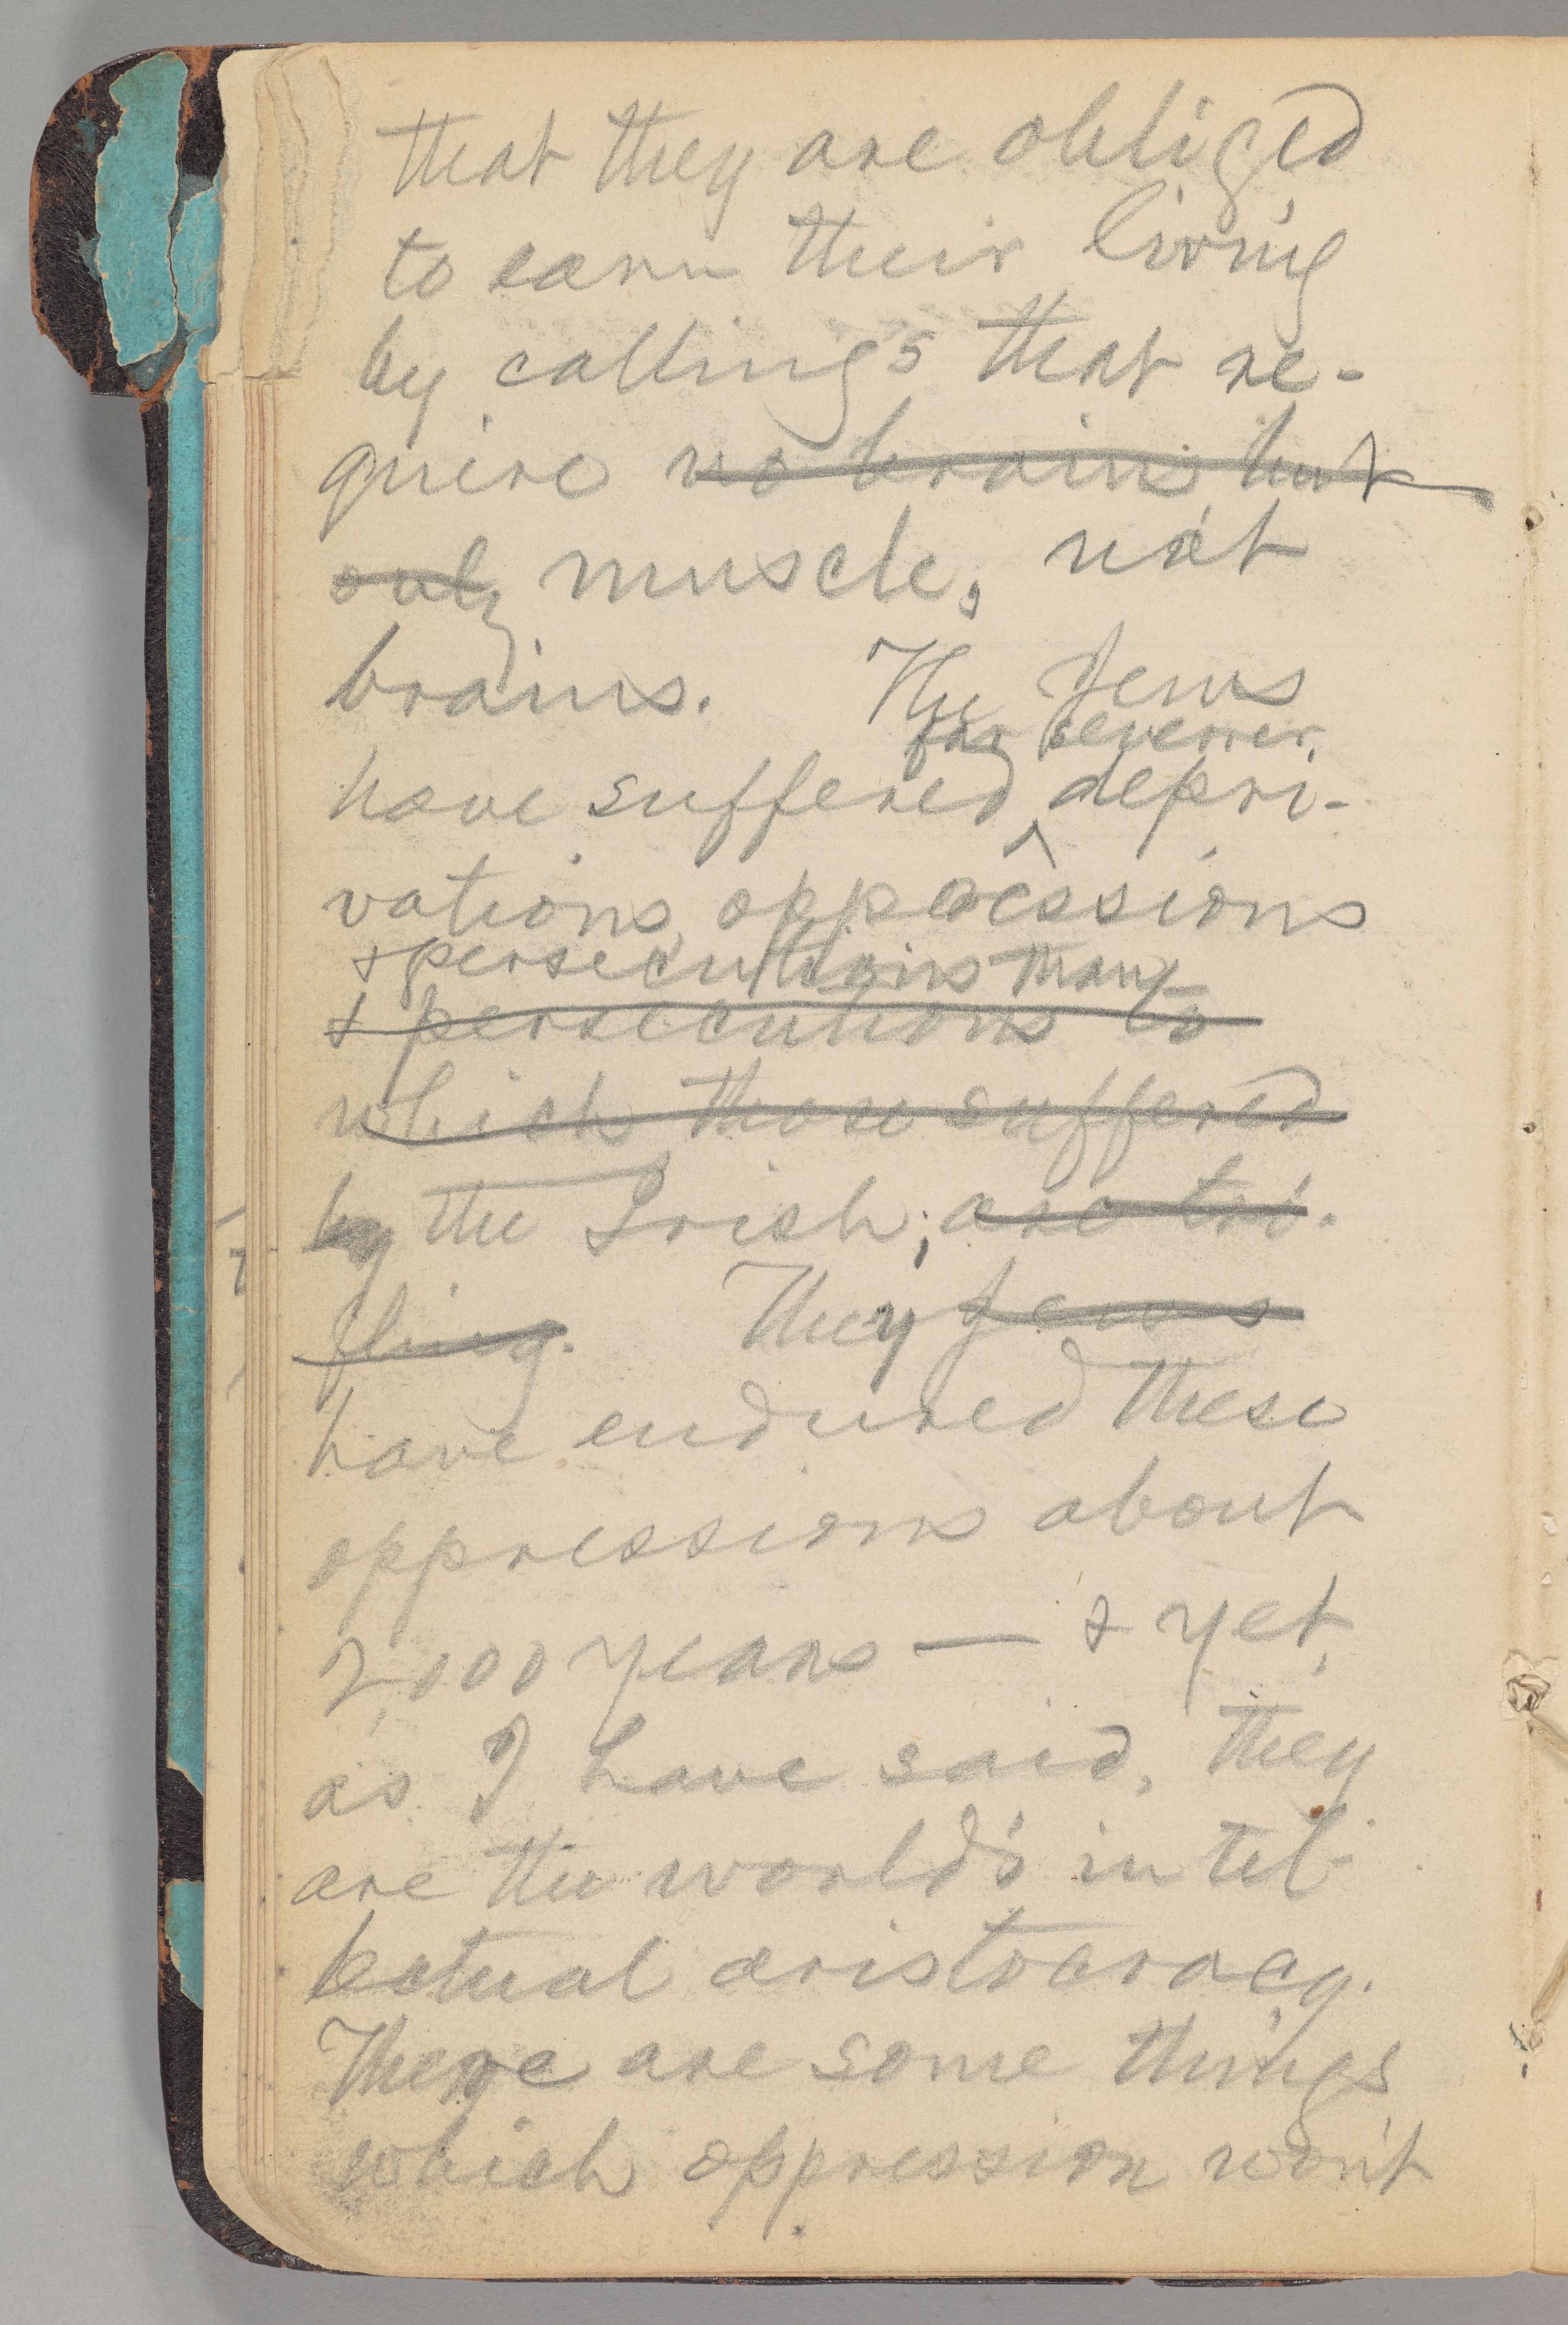 that they are obliged
to earn their living
by callings that re-
quire no brains but
only muscle, not
brains. The Jews
far severer
have suffered ^ depri-
vations oppressions
& persecutions than
& persecutions to
which those suffered
by the Irish; are tri-
fling. They Jews
have endured these
oppressions about
2,000 years — & yet,
as I have said, they
are the world's intel-
lectual aristocracy.
There are some things
which oppression won't